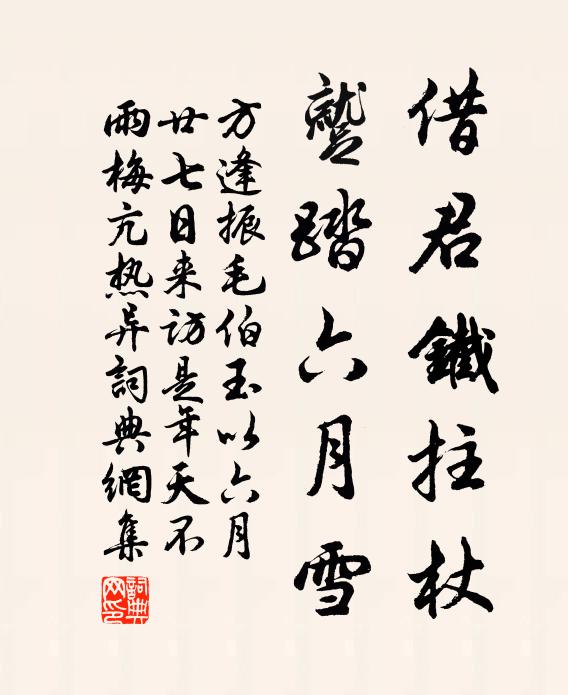 借君鐵拄杖
蹵踏六月雪
方逢振毛伯玉以六月
廿七日来訪是年天不
雨梅亢热异詞典網集
詞典
网印